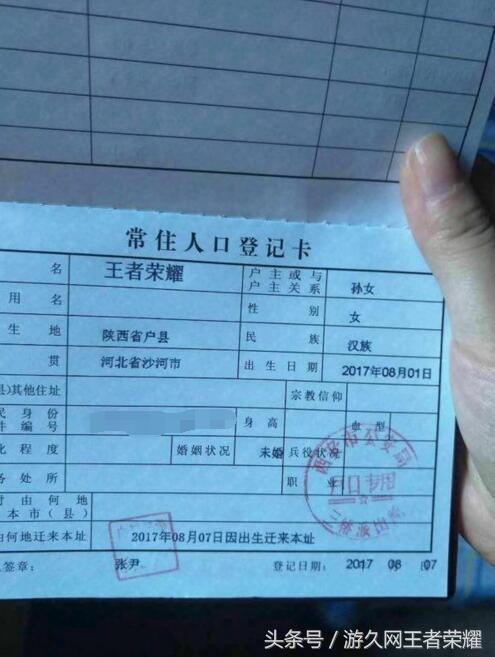 常住人口登记卡
名 王者荣耀 户主或与户主关系 孙女
用名 性别 女
生地 陕西省户县 民族 汉族
贯 河北省沙河市 出生日期 2017年08月01日
县)其他住址 宗教信仰
民身份件编号 身高 血型
化程度 婚姻状况 未婚 兵役状况
务处所 职业
时由何地本市(县)
何地迁来本址 2017年08月07日因出生迁来本址
人签章: 张尹 登记日期: 2017 08 07
户口专用
头条号/游久网王者荣耀